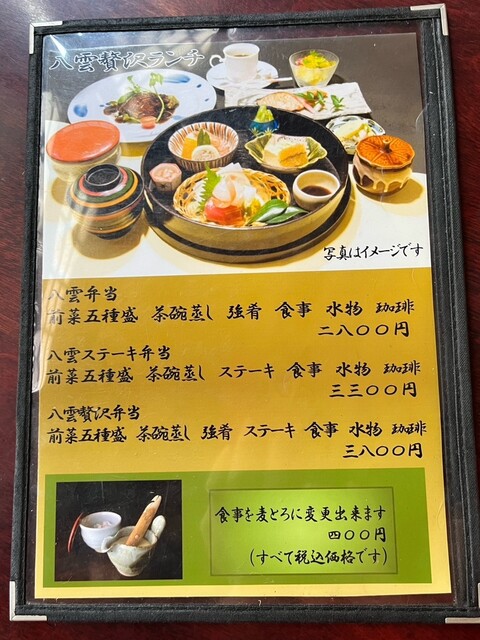 八雲贅沢ランチ
写真はイメージです
八雲弁当
前菜五種盛 茶碗蒸し 強肴 食事 水物 珈琲
二八〇〇円
八雲ステーキ弁当
前菜五種盛 茶碗蒸し ステーキ 食事 水物 珈琲
三三〇〇円
八雲贅沢弁当
前菜五種盛 茶碗蒸し 強肴 ステーキ 食事 水物 珈琲
三八〇〇円
食事を麦とろに変更出来ます
四〇〇円
(すべて税込価格です)